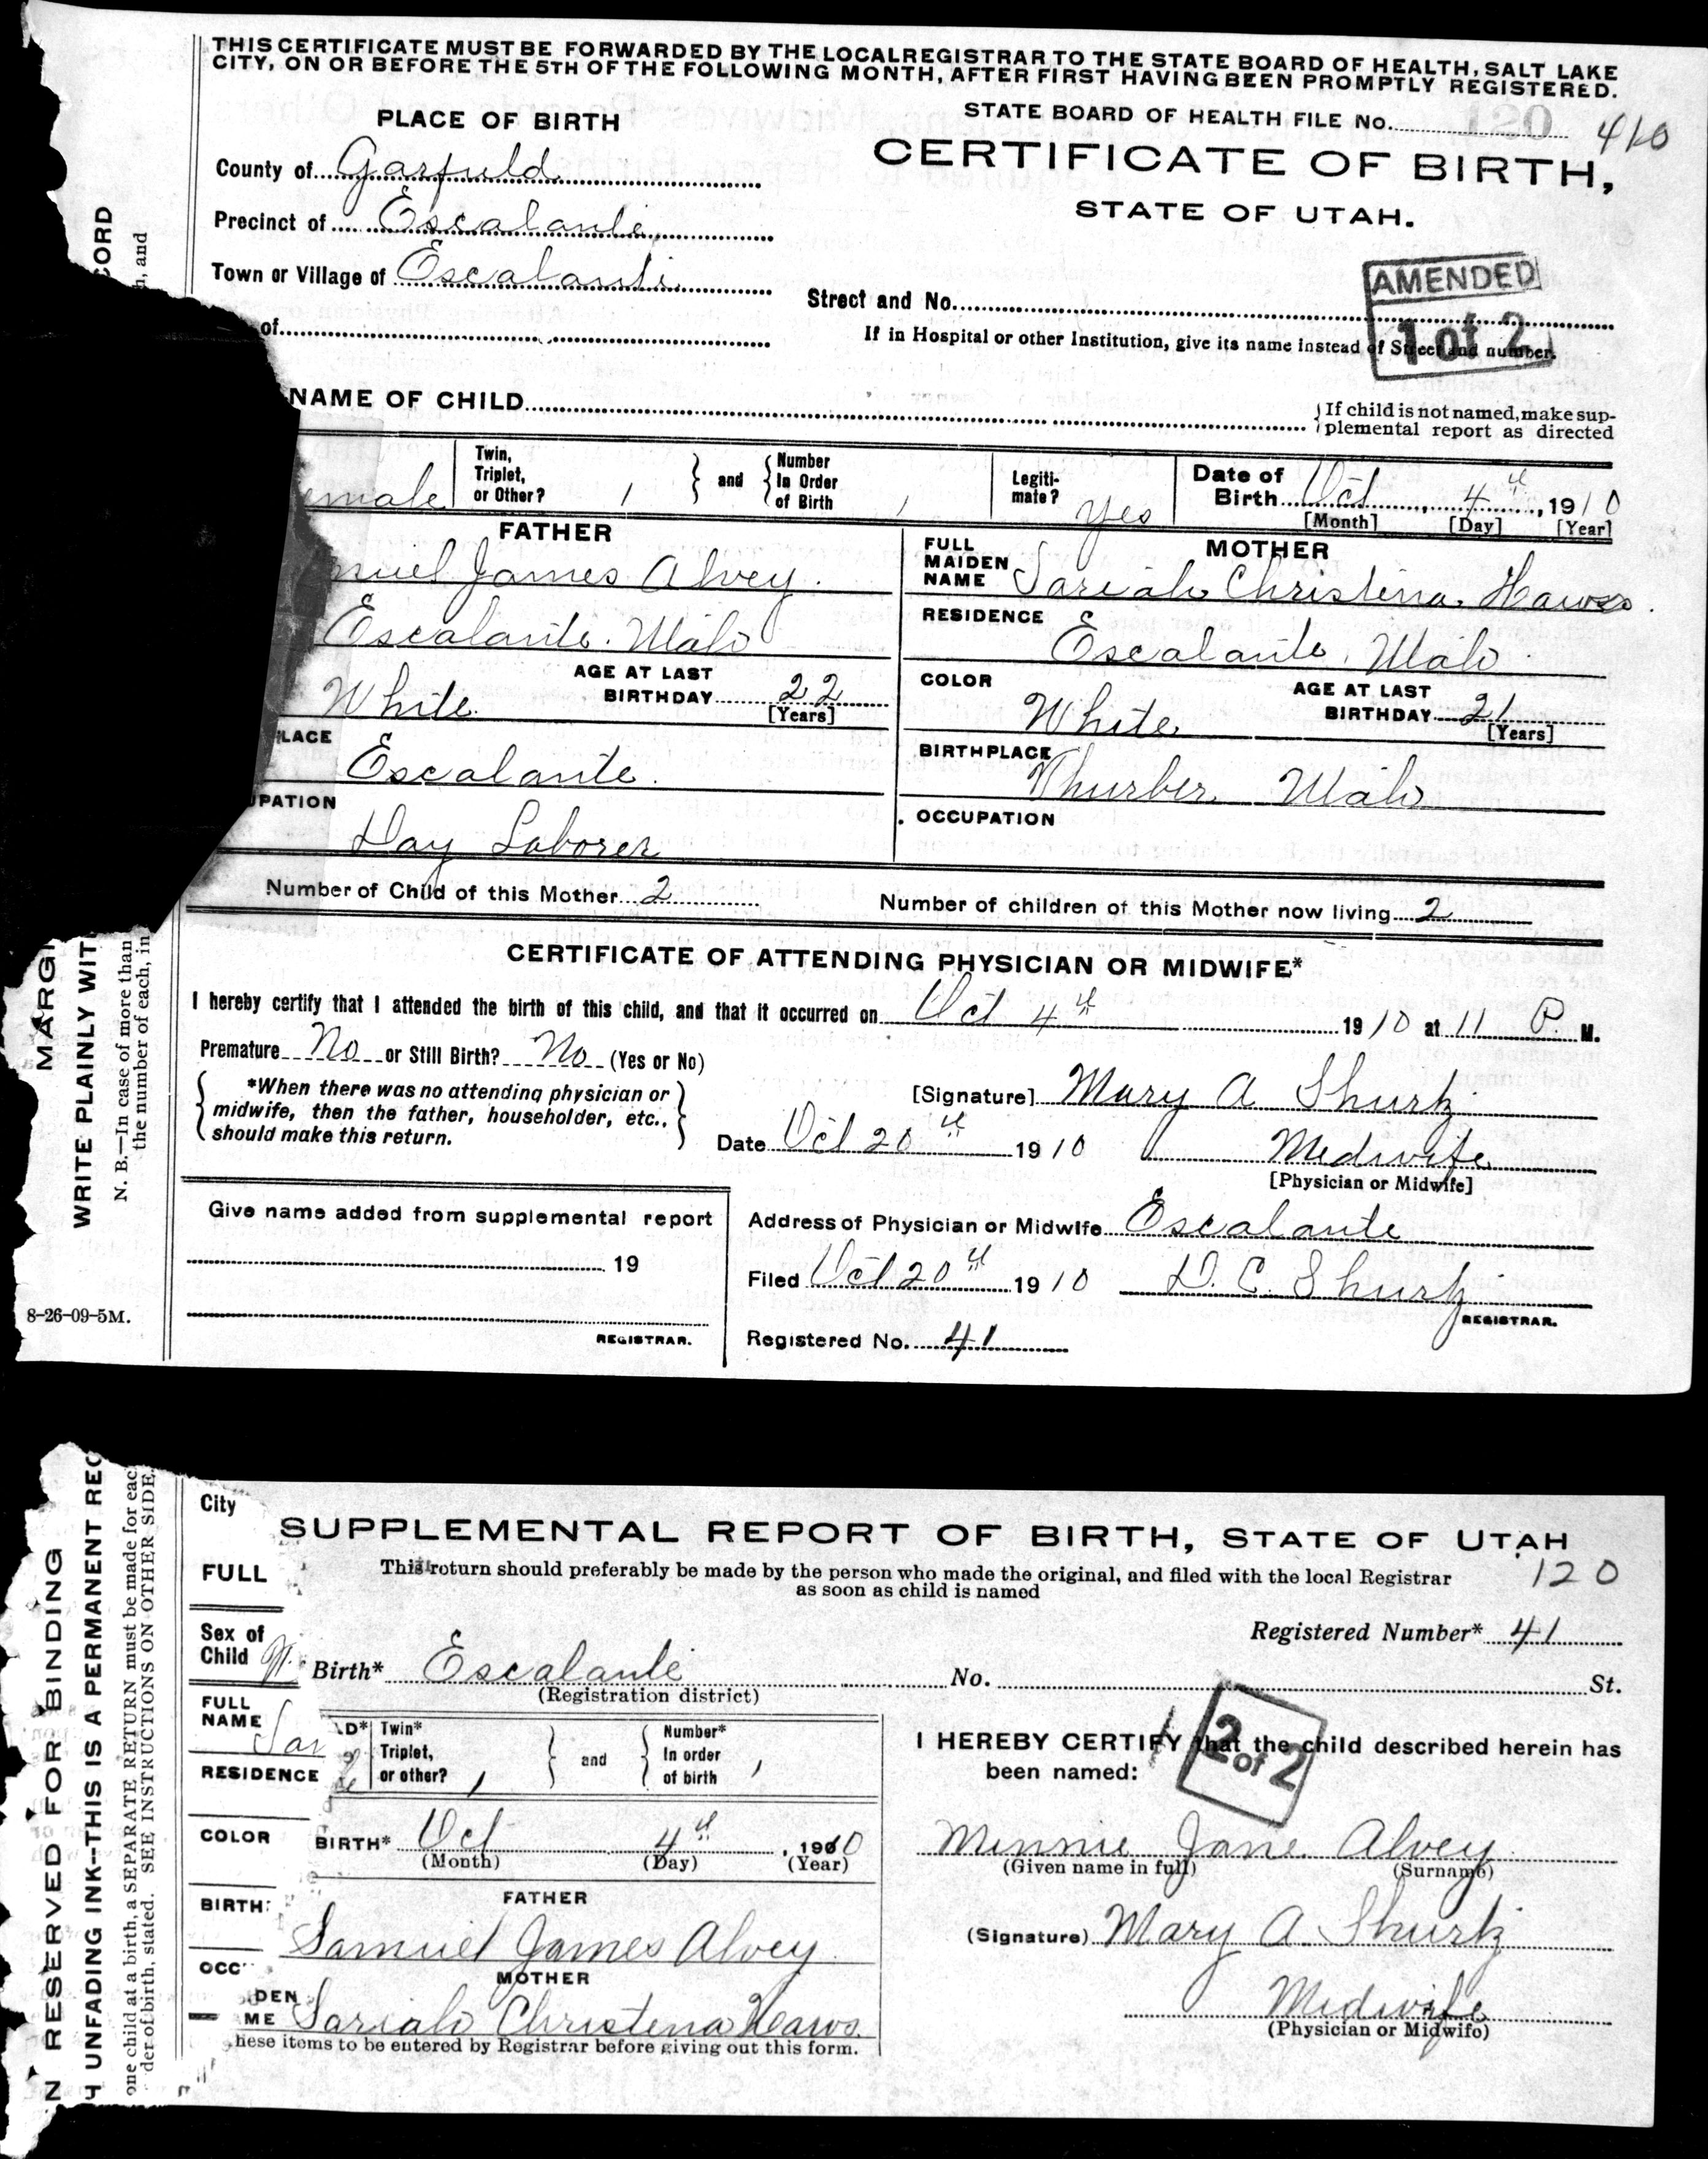 THIS CERTIFICATE MUST BE FORWARDED BY THE LOCAL REGISTRAR TO THE STATE BOARD OF HEALTH, SALT LAKE
CITY, ON OR BEFORE THE 5TH OF THE FOLLOWING MONTH, AFTER FIRST HAVING BEEN PROMPTLY REGISTERED.
PLACE OF BIRTH
STATE BOARD OF HEALTH FILE No. 120 410
CERTIFICATE OF BIRTH,
STATE OF UTAH.
County of Garfield
Precinct of Escalante
Town or Village of Escalante
of
Street and No.
If in Hospital or other Institution, give its name instead of Street and number.
AMENDED
1 of 2
NAME OF CHILD
If child is not named, make sup-
plemental report as directed
emale
Twin,
Triplet,
or Other? 1
and
Number
In Order
of Birth 1
Legiti-
mate? Yes
Date of
Birth Oct 4th, 1910
[Month] [Day] [Year]
FATHER
muel James Alvey.
Escalante. Utah
White
AGE AT LAST
BIRTHDAY 22
[Years]
LACE
Escalante.
UPATION
Day Laborer
MOTHER
FULL
MAIDEN
NAME Sariah Christena Haws.
RESIDENCE
Escalante, Utah.
COLOR
White
AGE AT LAST
BIRTHDAY 21
[Years]
BIRTHPLACE
Thurber Utah
OCCUPATION
Number of Child of this Mother 2
Number of children of this Mother now living 2
CERTIFICATE OF ATTENDING PHYSICIAN OR MIDWIFE*
I hereby certify that I attended the birth of this child, and that it occurred on Oct 4th 1910 at 11 P. M.
Premature No or Still Birth? No (Yes or No)
*When there was no attending physician or
midwife, then the father, householder, etc.,
should make this return.
[Signature] Mary A Shurtz
Date Oct 20th 1910
Medwife
[Physician or Midwife]
Give name added from supplemental report
19
REGISTRAR.
Address of Physician or Midwife Escalante
Filed Oct 20th 1910 D. C. Shurtz
REGISTRAR.
Registered No. 41
8-26-09-5M.
CORD
h, and
MARGI
WRITE PLAINLY WIT
N. B.—In case of more than
the number of each, in
City
FULL
Sex of
Child
FULL
NAME Sar
RESIDENCE
COLOR
BIRTH
OCC
SUPPLEMENTAL REPORT OF BIRTH, STATE OF UTAH
This return should preferably be made by the person who made the original, and filed with the local Registrar
as soon as child is named
120
Registered Number* 41
Birth* Escalante No. St.
(Registration district)
LD*
Twin*
Triplet,
or other? 1
and
Number*
In order
of birth 1
BIRTH* Oct 4th, 1910
(Month) (Day) (Year)
FATHER
Samuel James Alvey.
MOTHER
DEN
ME Sariah Christena Haws.
hese items to be entered by Registrar before giving out this form.
I HEREBY CERTIFY that the child described herein has
been named:
2 of 2
Minnie Jane Alvey
(Given name in full) (Surname)
(Signature) Mary A. Shurtz
Midwife
(Physician or Midwife)
N RESERVED FOR BINDING
H UNFADING INK—THIS IS A PERMANENT REC
one child at a birth, a SEPARATE RETURN must be made for eac
der of birth, stated. SEE INSTRUCTIONS ON OTHER SIDE.